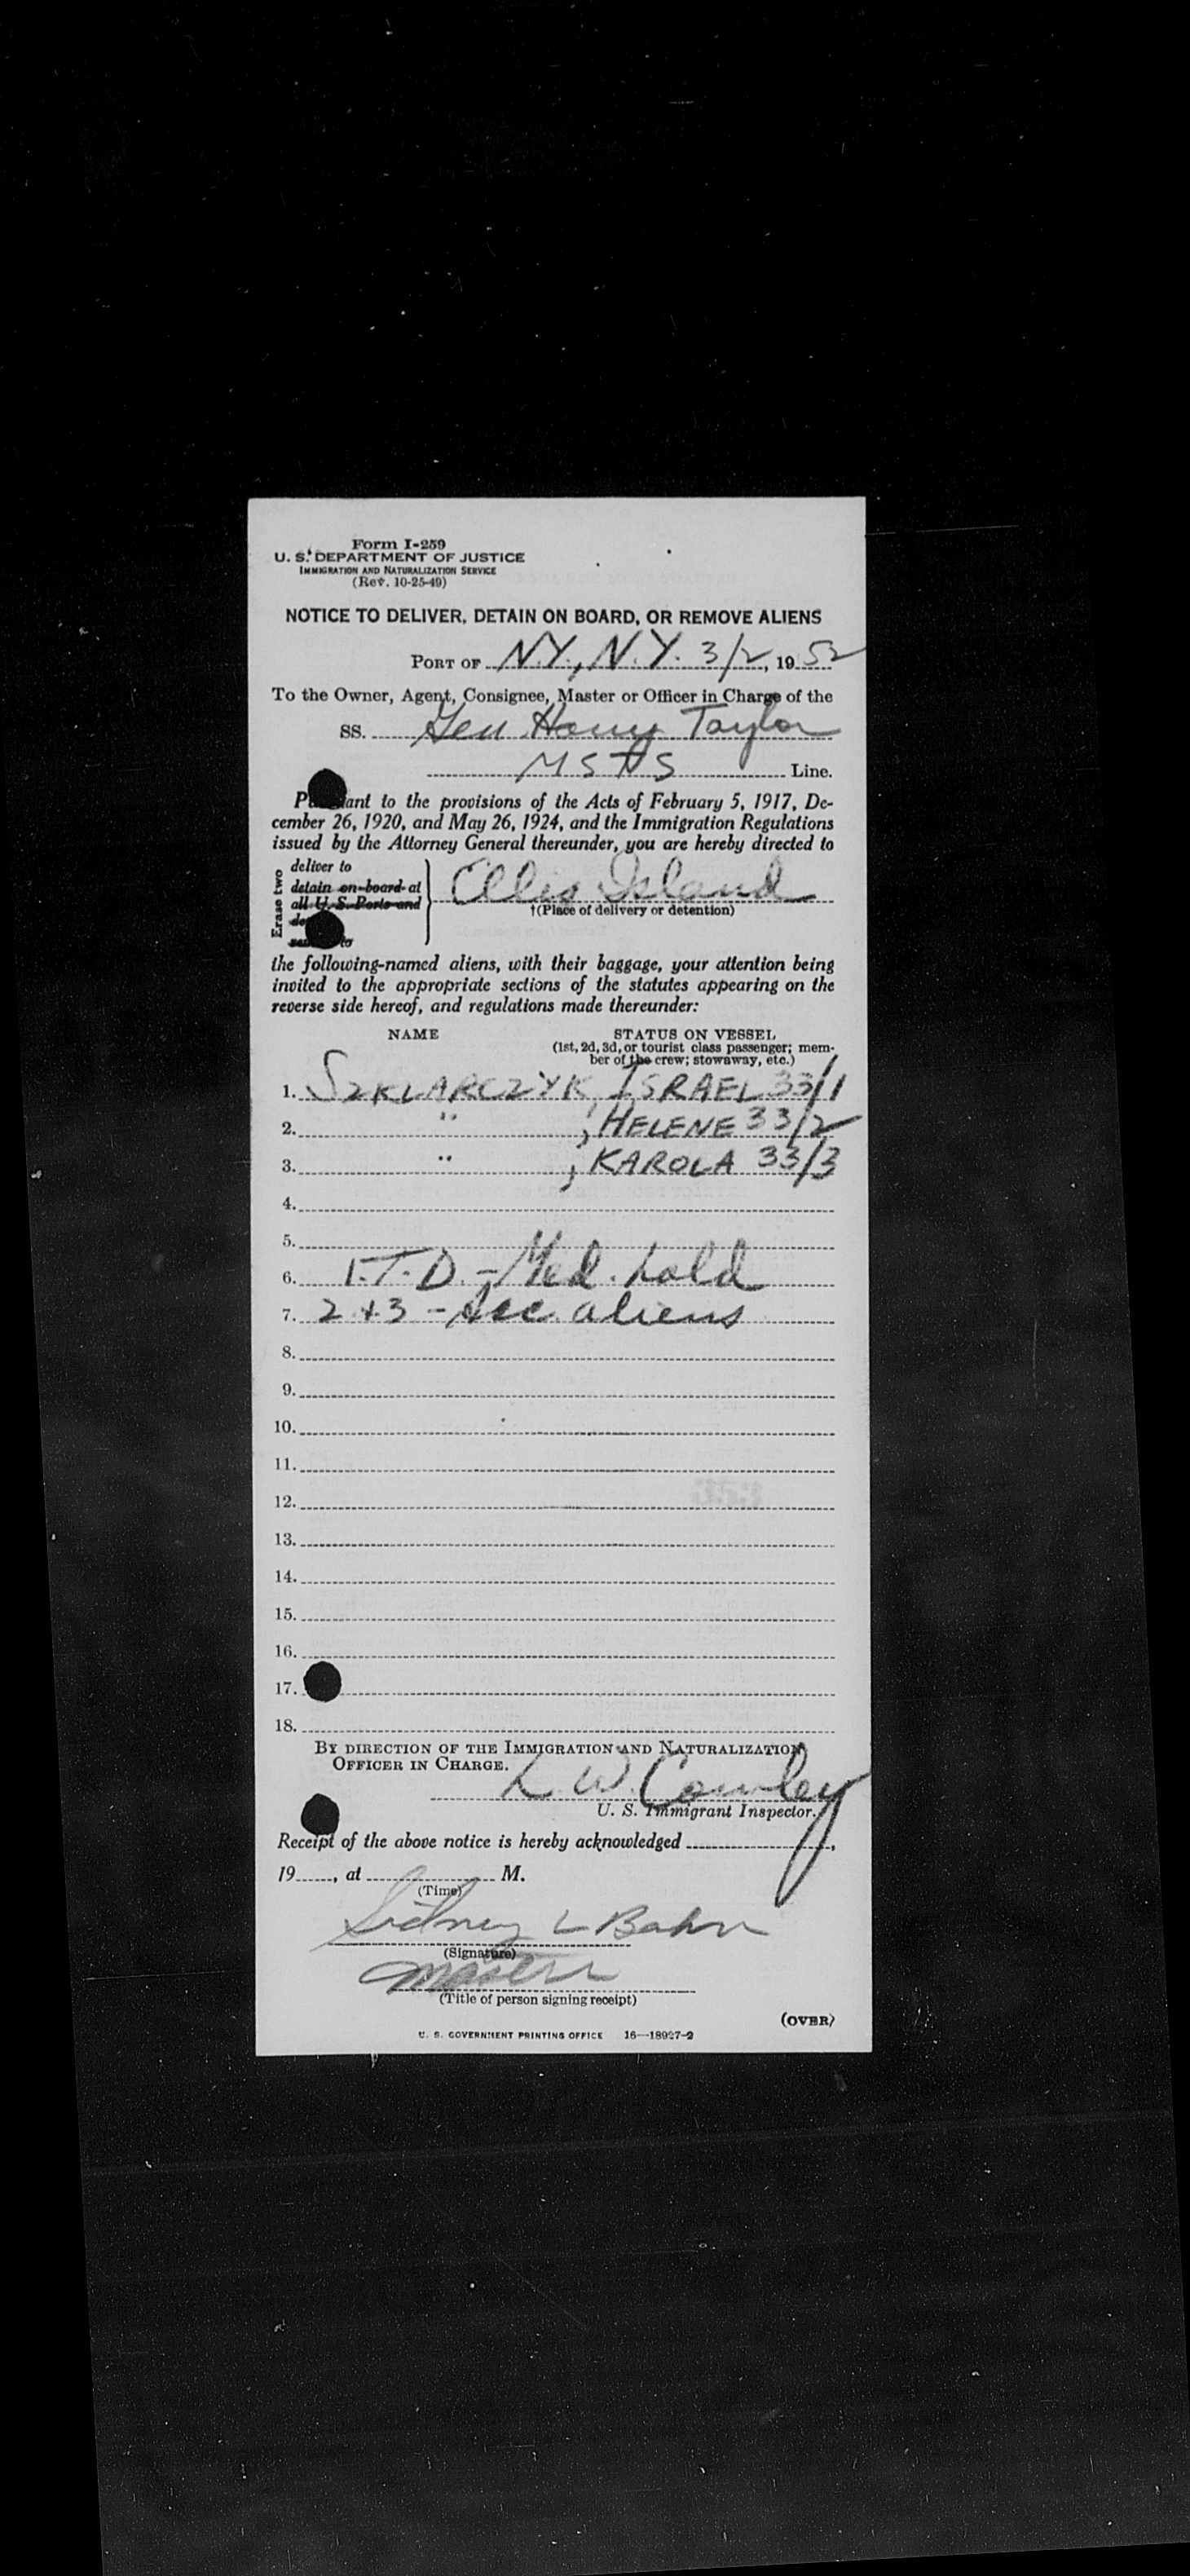 Form I-259
U. S. DEPARTMENT OF JUSTICE
IMMIGRATION AND NATURALIZATION SERVICE
(Rev. 10-25-49)
NOTICE TO DELIVER, DETAIN ON BOARD, OR REMOVE ALIENS
PORT OF N.Y., N.Y. 3/2, 1952
To the Owner, Agent, Consignee, Master or Officer in Charge of the
SS. Gen. Harry Taylor
MSTS Line.
Pursuant to the provisions of the Acts of February 5, 1917, De-
cember 26, 1920, and May 26, 1924, and the Immigration Regulations
issued by the Attorney General thereunder, you are hereby directed to
Erase two
deliver to
detain on board at
all U. S. Ports and
Ellis Island
†(Place of delivery or detention)
to
the following-named aliens, with their baggage, your attention being
invited to the appropriate sections of the statutes appearing on the
reverse side hereof, and regulations made thereunder:
NAME STATUS ON VESSEL
(1st, 2d, 3d, or tourist class passenger; mem-
ber of the crew; stowaway, etc.)
1. SZKLARCZYK, ISRAEL 33/1
2. " , HELENE 33/2
3. " , KAROLA 33/3
4.
5.
6. 1. T.D. - Med. hold
7. 2 + 3 - Acc. aliens
8.
9.
10.
11.
12.
13.
14.
15.
16.
17.
18.
BY DIRECTION OF THE IMMIGRATION AND NATURALIZATION
OFFICER IN CHARGE.
L. W. Cowley
U. S. Immigrant Inspector.
Receipt of the above notice is hereby acknowledged ,
19 , at M.
(Time)
Sidney L Bahn
(Signature)
Master
(Title of person signing receipt)
(OVER)
U. S. GOVERNMENT PRINTING OFFICE 16—18927-2